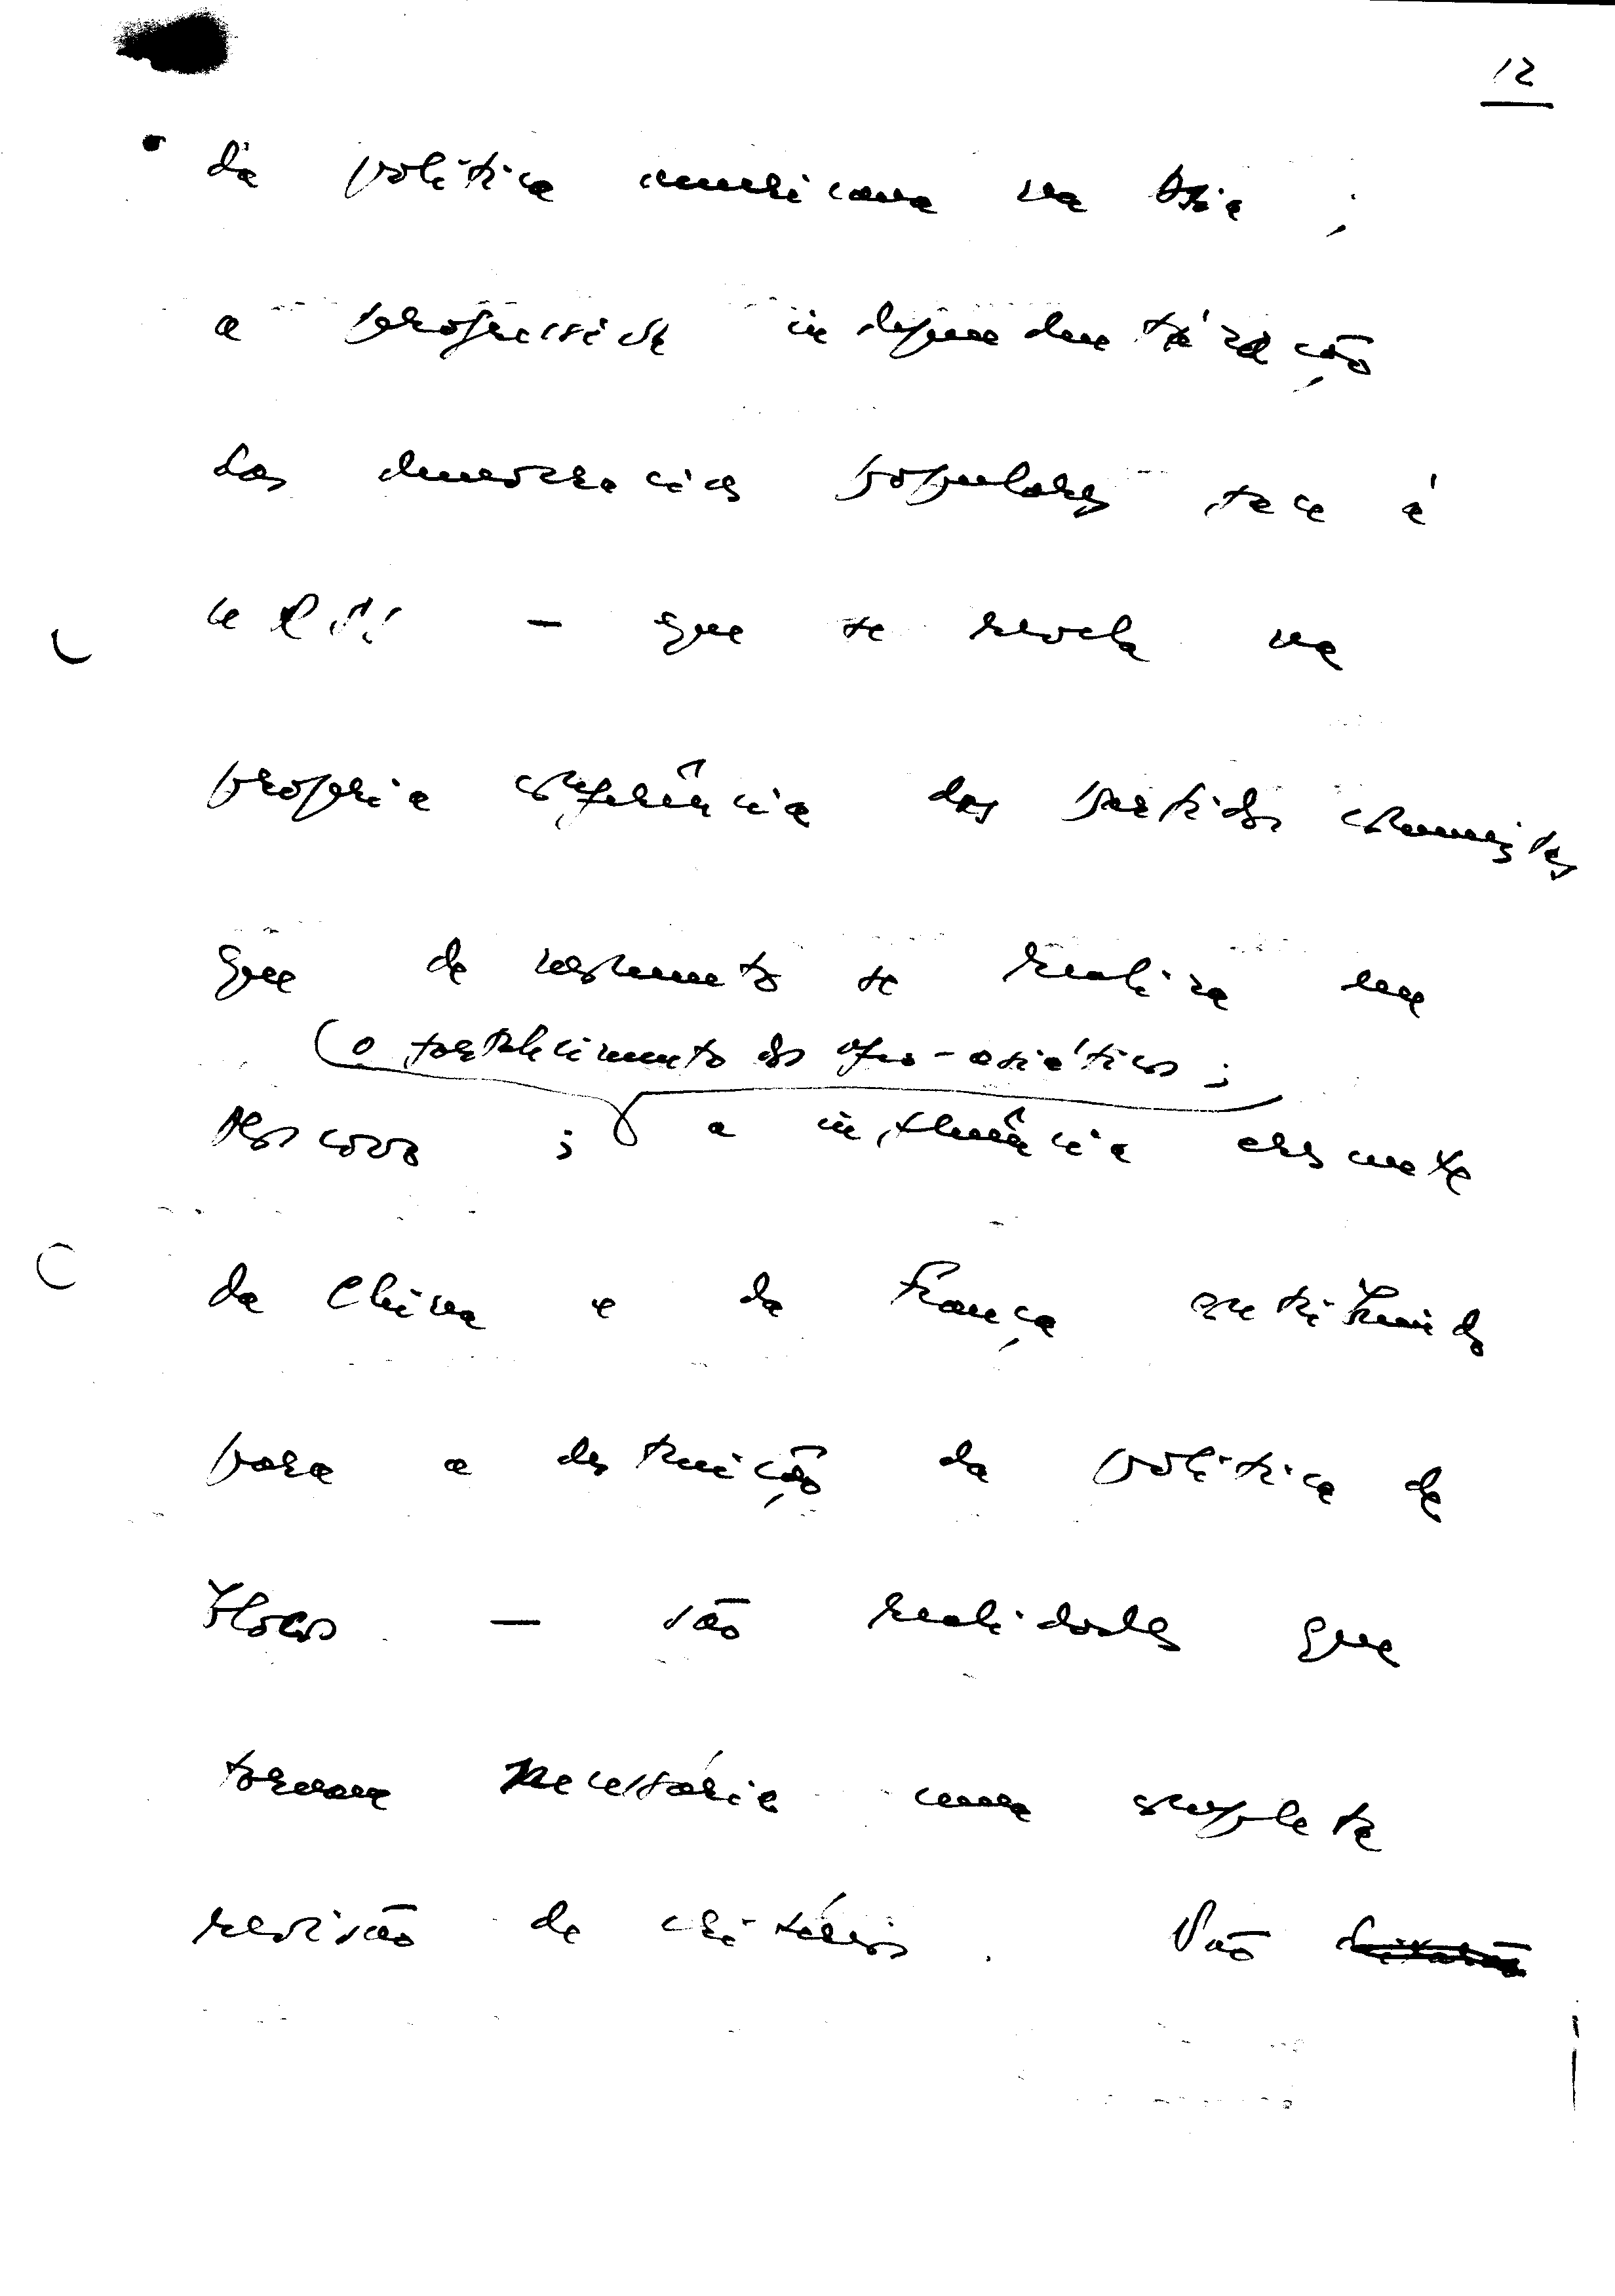 12
da política americana na Ásia ;
a progressiva independentização
das democracias populares face à
URSS — que se revela na
própria conferência dos partidos comunistas
que de momento se realiza em
o fortalecimento dos afro-asiáticos ;
Moscovo ; a influência crescente
da China e da França contribuindo
para a destruição da política de
blocos — são realidades que
tornam necessária uma completa
revisão de critérios . São